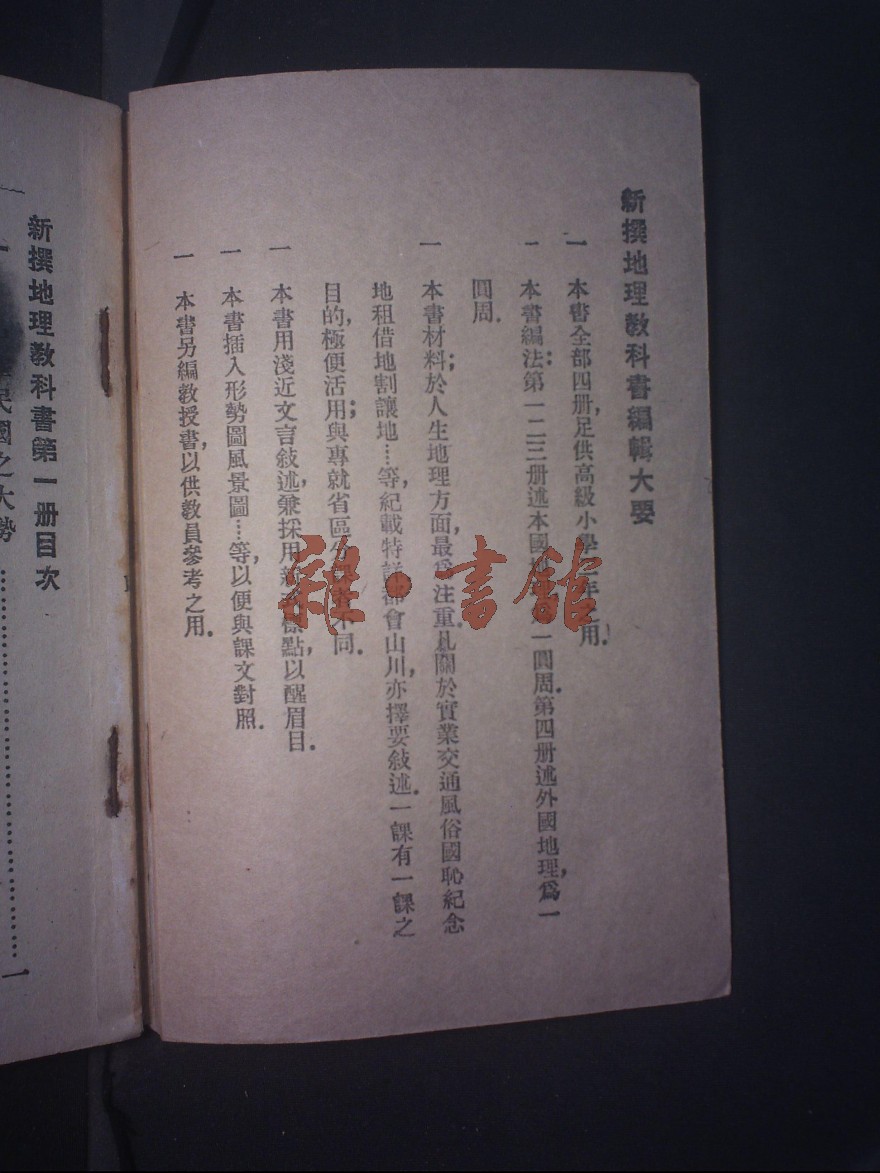 新撰地理教科書編輯大要
一 本書全部四册,足供高級小學二年之用.
一 本書編法:第一二三册述本國地理,爲一圓周.第四册述外國地理,爲一
圓周.
一 本書材料;於人生地理方面,最爲注重.凡關於實業交通風俗國恥紀念
地租借地割讓地……等,紀載特詳.都會山川,亦擇要敍述.一課有一課之
目的,極便活用;與專就省區分課者不同.
一 本書用淺近文言敍述,兼採用新式標點,以醒眉目.
一 本書插入形勢圖風景圖……等,以便與課文對照.
一 本書另編教授書,以供教員參考之用.
新撰地理教科書第一册目次
民國之大勢……一
雜·書館